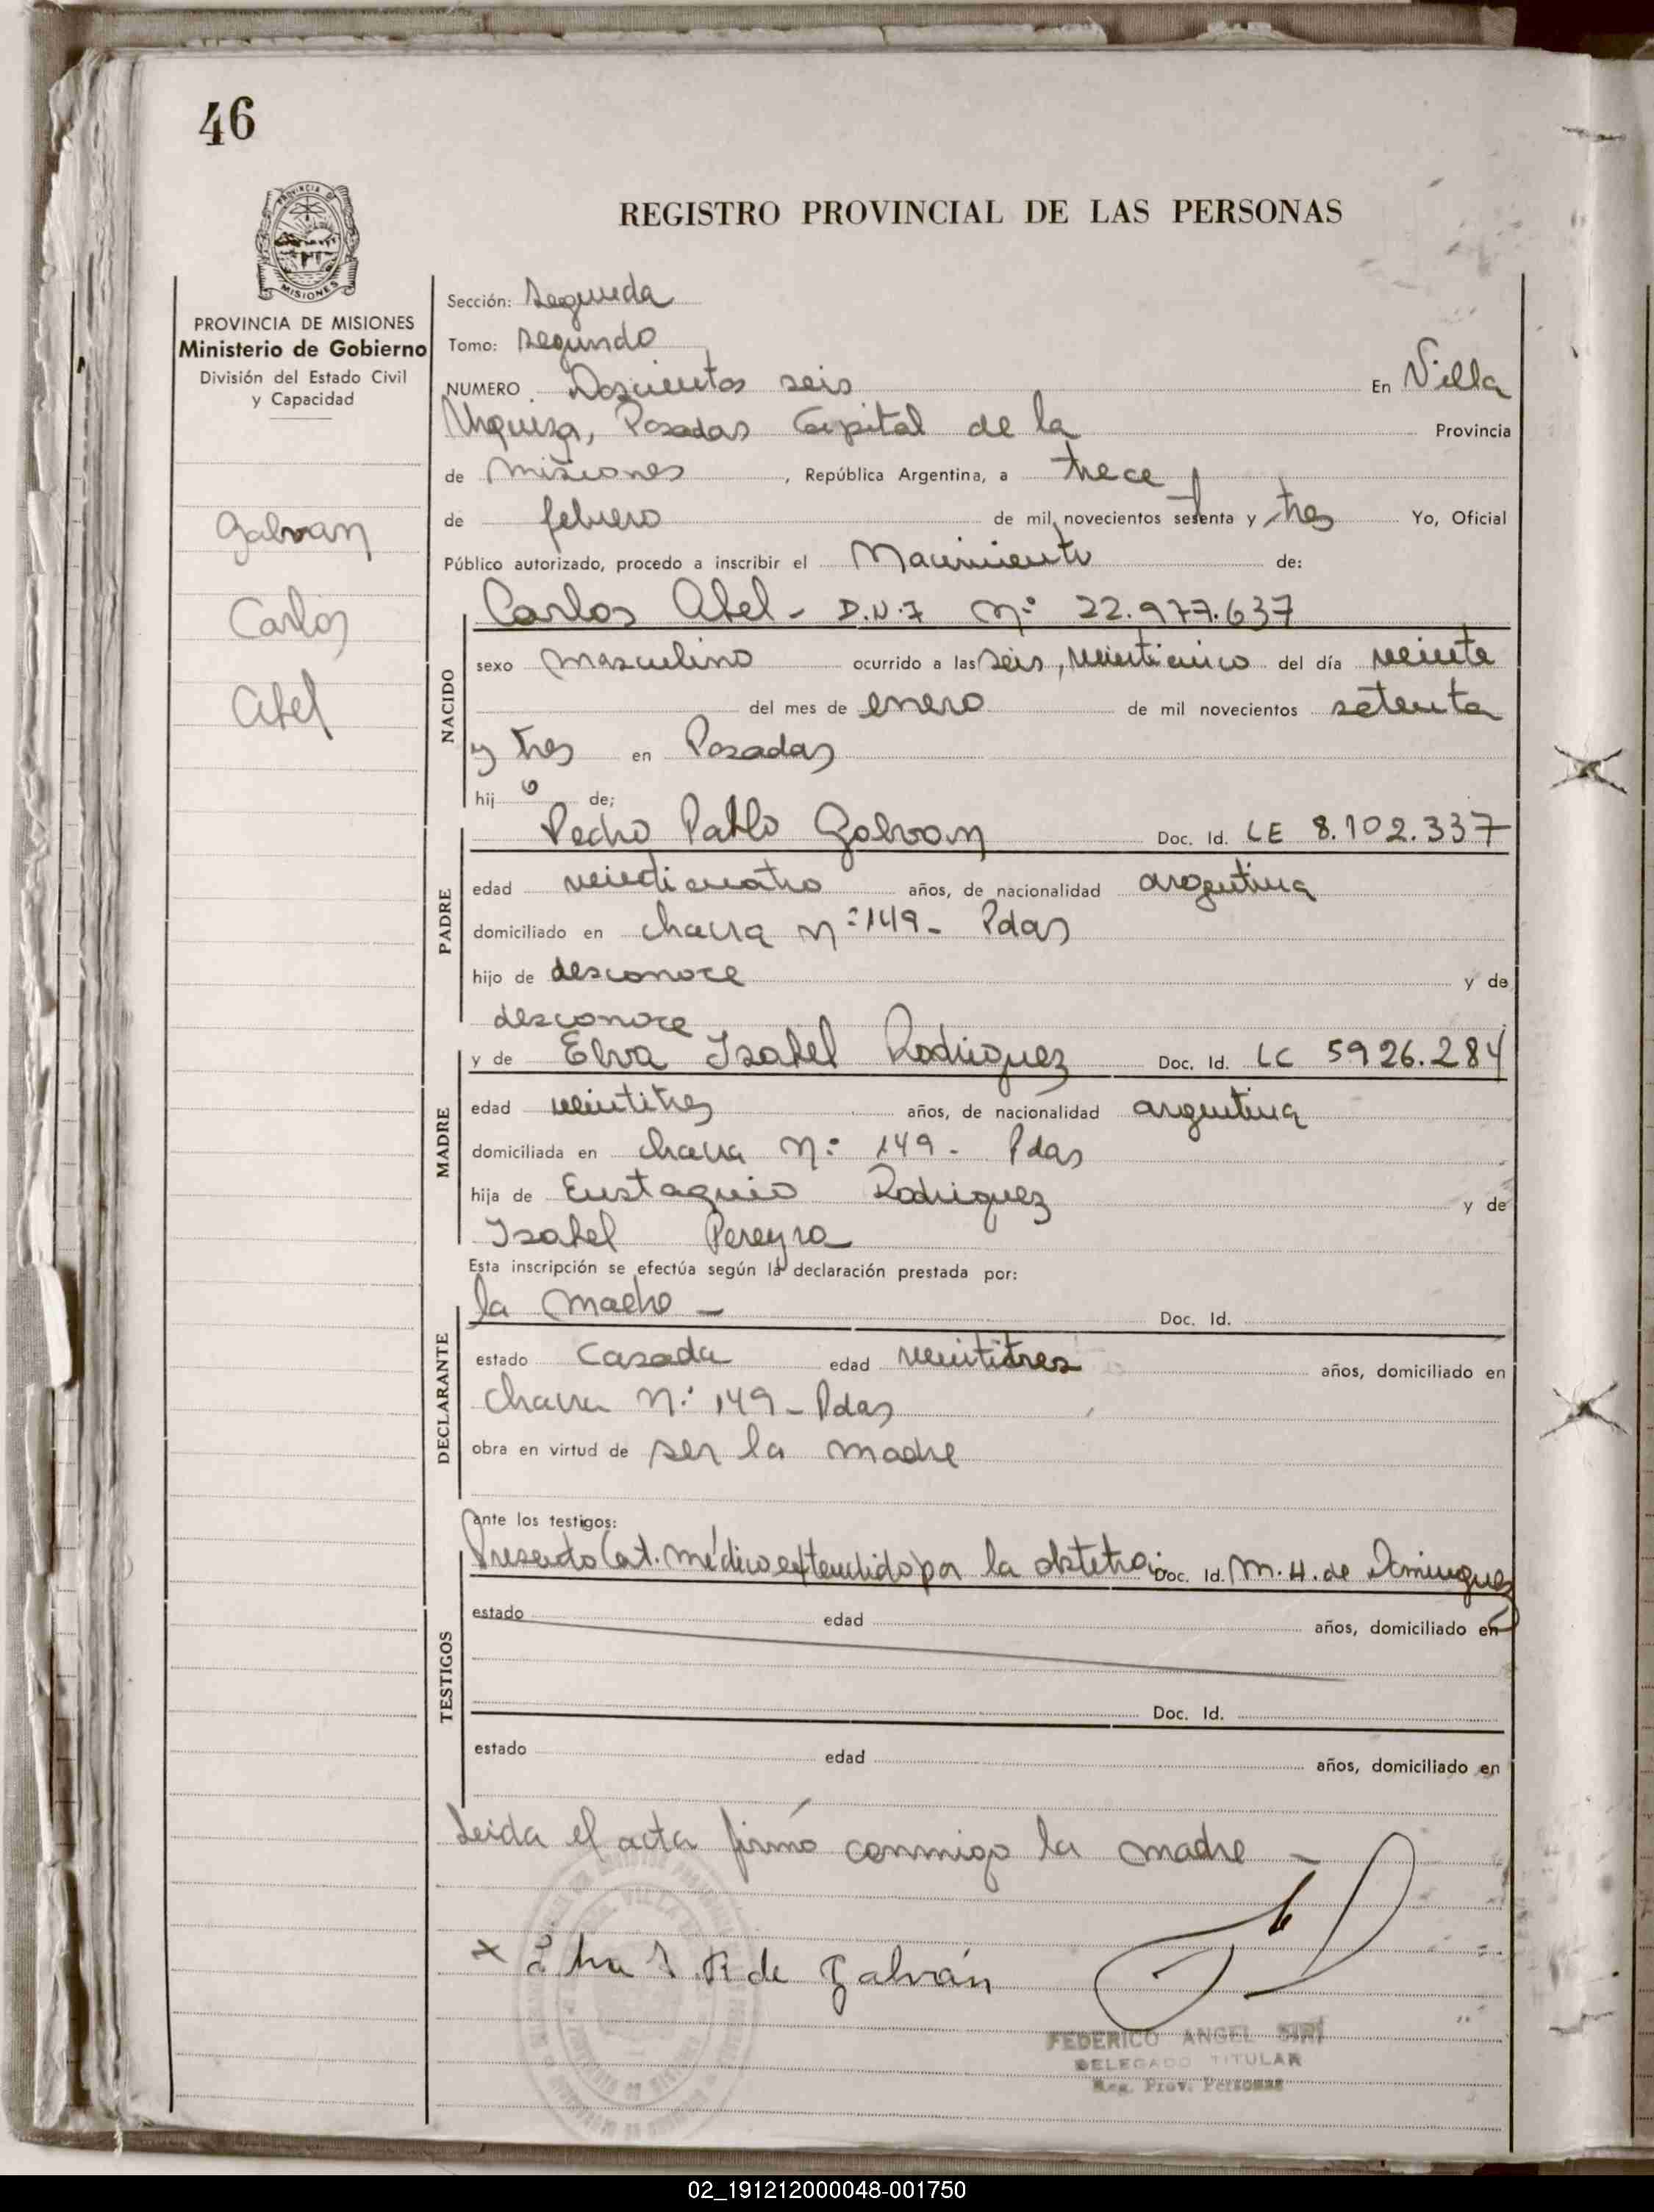 46
REGISTRO PROVINCIAL DE LAS PERSONAS
PROVINCIA DE MISIONES
Ministerio de Gobierno
División del Estado Civil
y Capacidad
Galvan
Carlos
Abel
Sección: Segunda
Tomo: segundo
NUMERO. Doscientos seis En Villa
Urquiza, Posadas Capital de la Provincia
de Misiones, República Argentina, a trece
de febrero de mil novecientos setenta y tres Yo, Oficial
Público autorizado, procedo a inscribir el Nacimiento de:
NACIDO
Carlos Abel - D.N.I Nº 22.977.637
sexo masculino ocurrido a las seis, veinticinco del día veinte
del mes de enero de mil novecientos setenta
y tres en Posadas
hij o de;
PADRE
Pedro Pablo Galvan Doc. Id. LE 8.102.337
edad veinticuatro años, de nacionalidad argentina
domiciliado en chacra Nº 149 - Pdas
hijo de desconoce y de
desconoce
MADRE
y de Elva Isabel Rodriguez Doc. Id. LC 5926.284
edad veintitres años, de nacionalidad argentina
domiciliada en chacra Nº 149 - Pdas
hija de Eustaquio Rodriguez y de
Isabel Pereyra
Esta inscripción se efectúa según la declaración prestada por:
DECLARANTE
la madre - Doc. Id.
estado casada edad veintitres años, domiciliado en
chacra Nº 149 - Pdas
obra en virtud de ser la madre
ante los testigos:
TESTIGOS
Presento Cert. médico extendido por la obstetra Doc. Id. M. H. de Dominguez
estado edad años, domiciliado en
Doc. Id.
estado edad años, domiciliado en
Leida el acta firmó conmigo la madre -
x Elva I. R de Galván
FEDERICO ANGEL SIRI
DELEGADO TITULAR
Reg. Prov. Personas
02_191212000048-001750